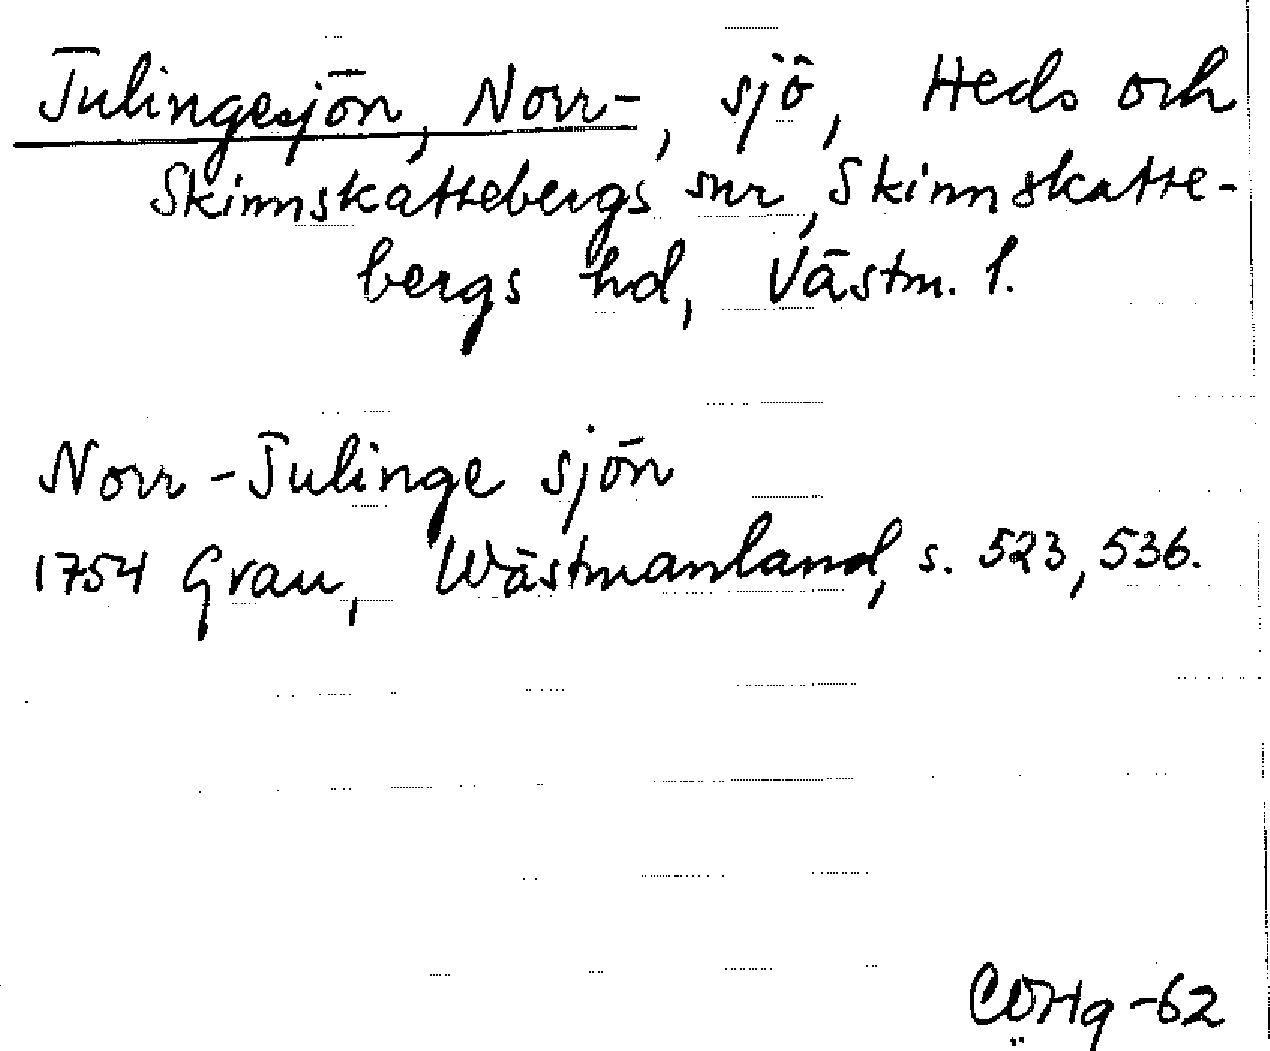 Julingesjön, Norr-, sjö, Heds och
Skinnskattebergs snr, Skinnskatte-
bergs hd, Västm. l.
Norr-Julinge sjön
1754 Grau, Wästmanland, s. 523, 536.
-62